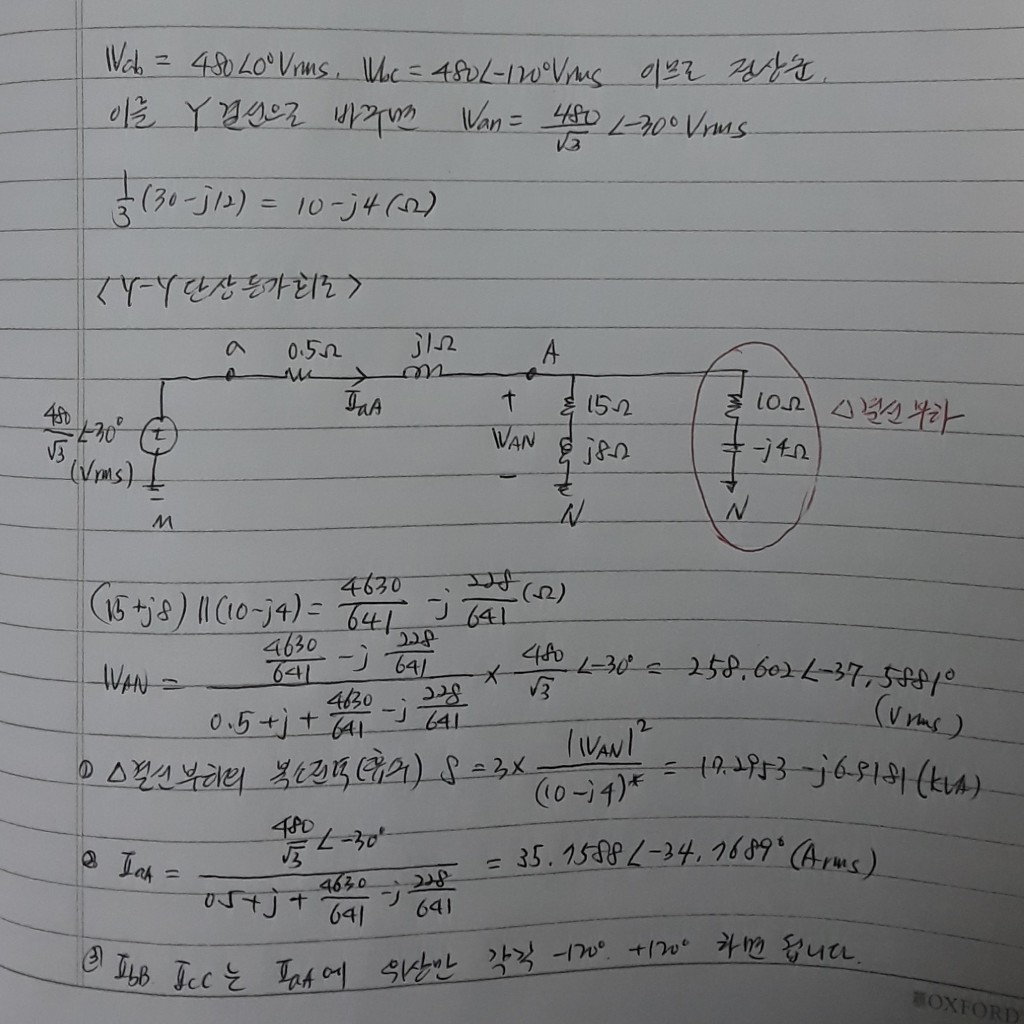 Vab = 480∠0° Vrms, Vbc = 480∠-120° Vrms 이므로 정상순.
이를 Y 결선으로 바꾸면 Van = 480/√3 ∠-30° Vrms
1/3 (30-j12) = 10-j4 (Ω)
<Y-Y 단상 등가회로>
a 0.5Ω j1Ω A
IaA
480/√3 ∠-30° (Vrms)
+ VAN -
15Ω
j8Ω
10Ω
-j4Ω
△결선 부하
n N N
(15+j8) || (10-j4) = 4630/641 - j 228/641 (Ω)
VAN = (4630/641 - j 228/641) / (0.5+j+ 4630/641 - j 228/641) × 480/√3 ∠-30° = 258.602∠-37.5881° (Vrms)
① △결선 부하의 복소전력(흡수) S = 3× |VAN|² / (10-j4)* = 17.2953 - j6.9181 (kVA)
② IaA = (480/√3 ∠-30°) / (0.5+j+ 4630/641 - j 228/641) = 35.7588∠-34.7689° (Arms)
③ IbB, IcC 는 IaA에 위상만 각각 -120°, +120° 하면 됩니다.
OXFORD